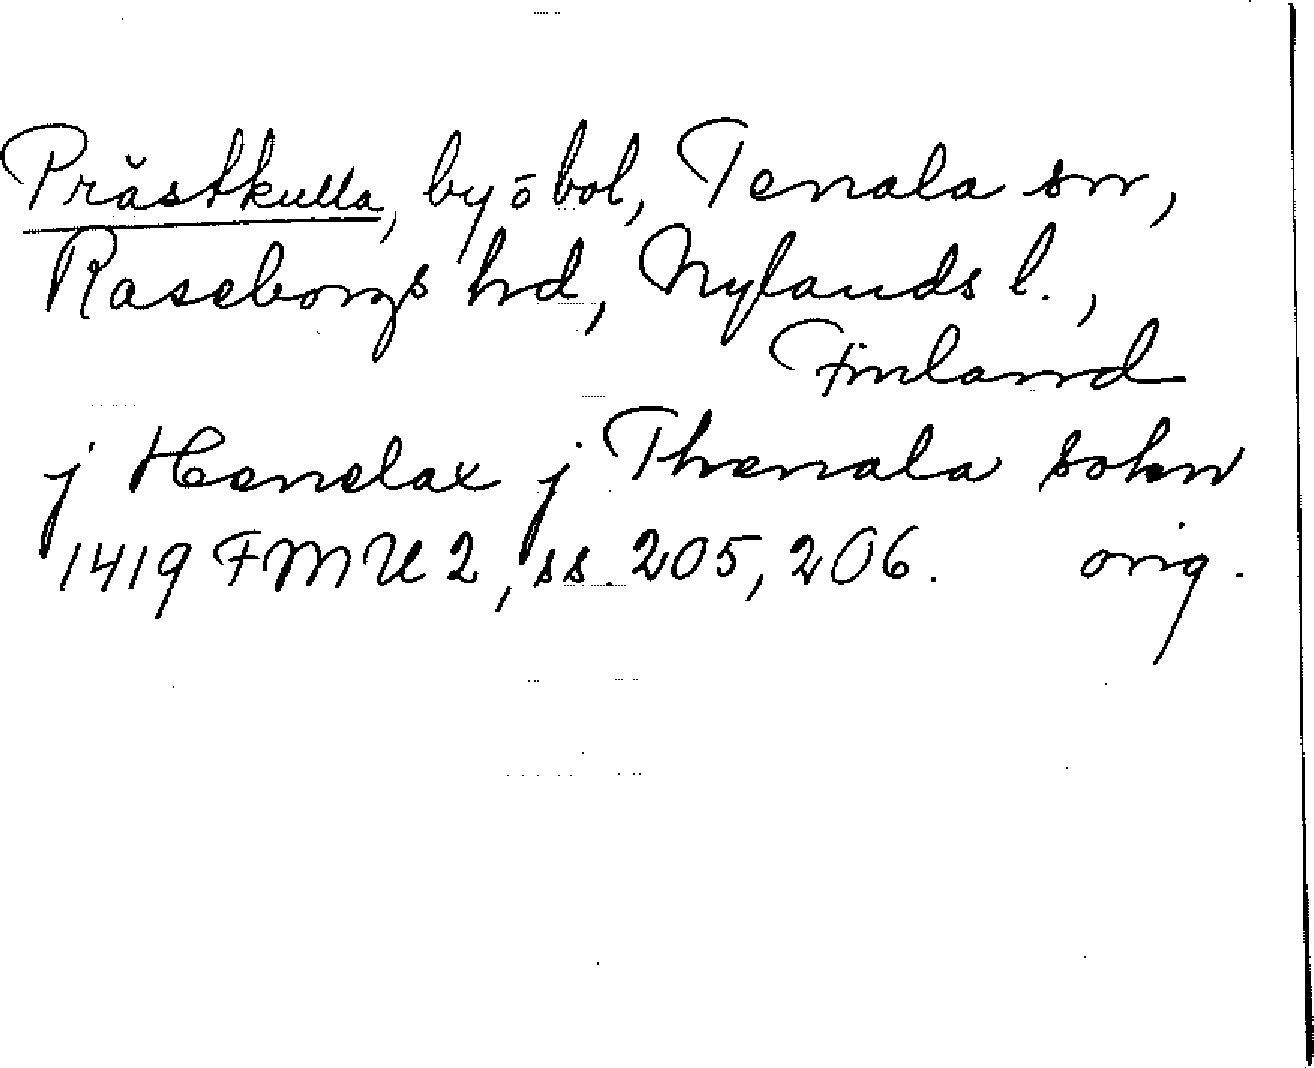 Prästkulla, by o bol, Tenala sn,
Raseborgs hrd, Nylands l.,
Finland
j Henelax j Thenala sokn
1419 FMU 2, ss. 205, 206. orig.